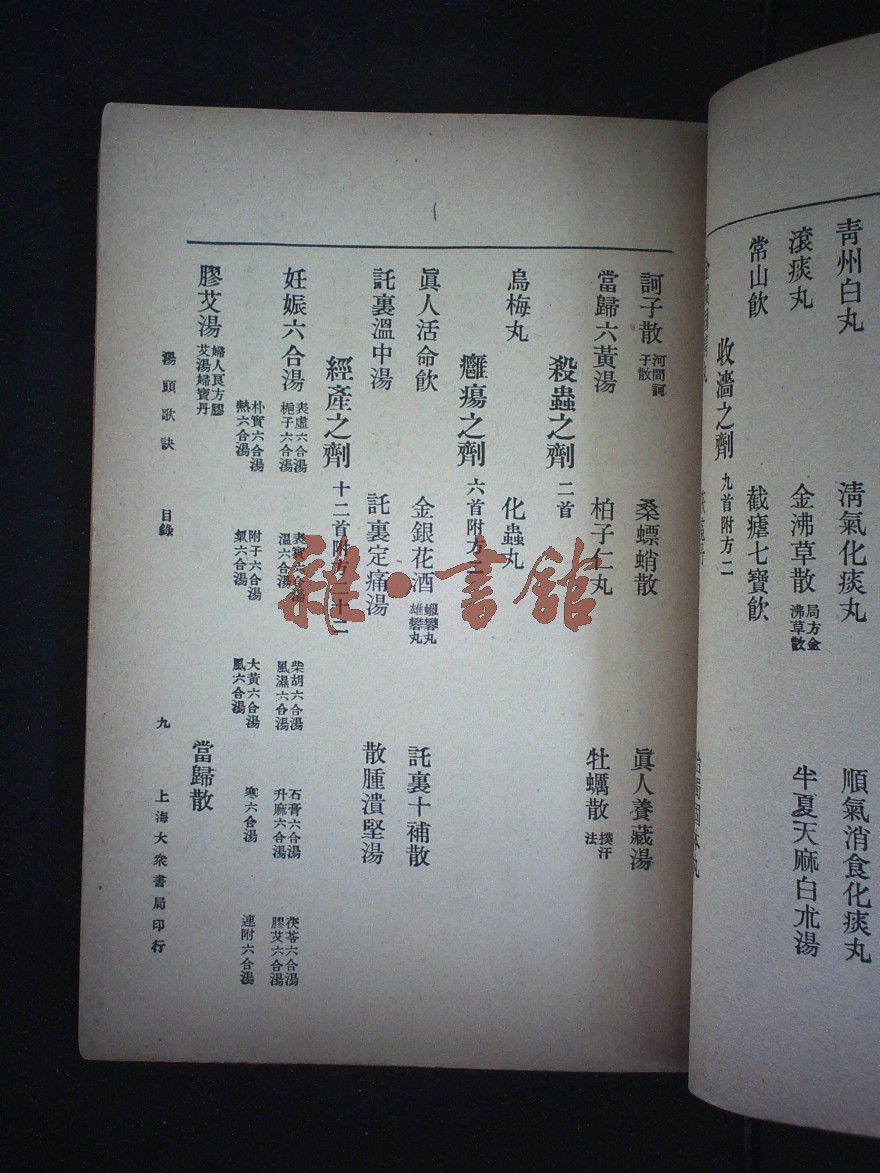 青州白丸 清氣化痰丸 順氣消食化痰丸
滾痰丸 金沸草散 局方金沸草散 半夏天麻白朮湯
常山飲 截瘧七寶飲
收濇之劑 九首附方二
訶子散 河間訶子散 桑螵蛸散 眞人養藏湯
當歸六黃湯 柏子仁丸 牡蠣散 撲汗法
殺蟲之劑 二首
烏梅丸 化蟲丸
癰瘍之劑 六首附方二
眞人活命飲 金銀花酒 蠟礬丸 雄礬丸 託裏十補散
託裏溫中湯 託裏定痛湯 散腫潰堅湯
經產之劑 十二首附方二十二
妊娠六合湯 表虛六合湯 梔子六合湯 表實六合湯 溫六合湯 柴胡六合湯 風濕六合湯 石膏六合湯 升麻六合湯 茯苓六合湯 膠艾六合湯
朴實六合湯 熱六合湯 附子六合湯 氣六合湯 大黃六合湯 風六合湯 寒六合湯 連附六合湯
膠艾湯 婦人良方膠艾湯婦寶丹 當歸散
湯頭歌訣 目錄 九 上海大衆書局印行
雜·書館